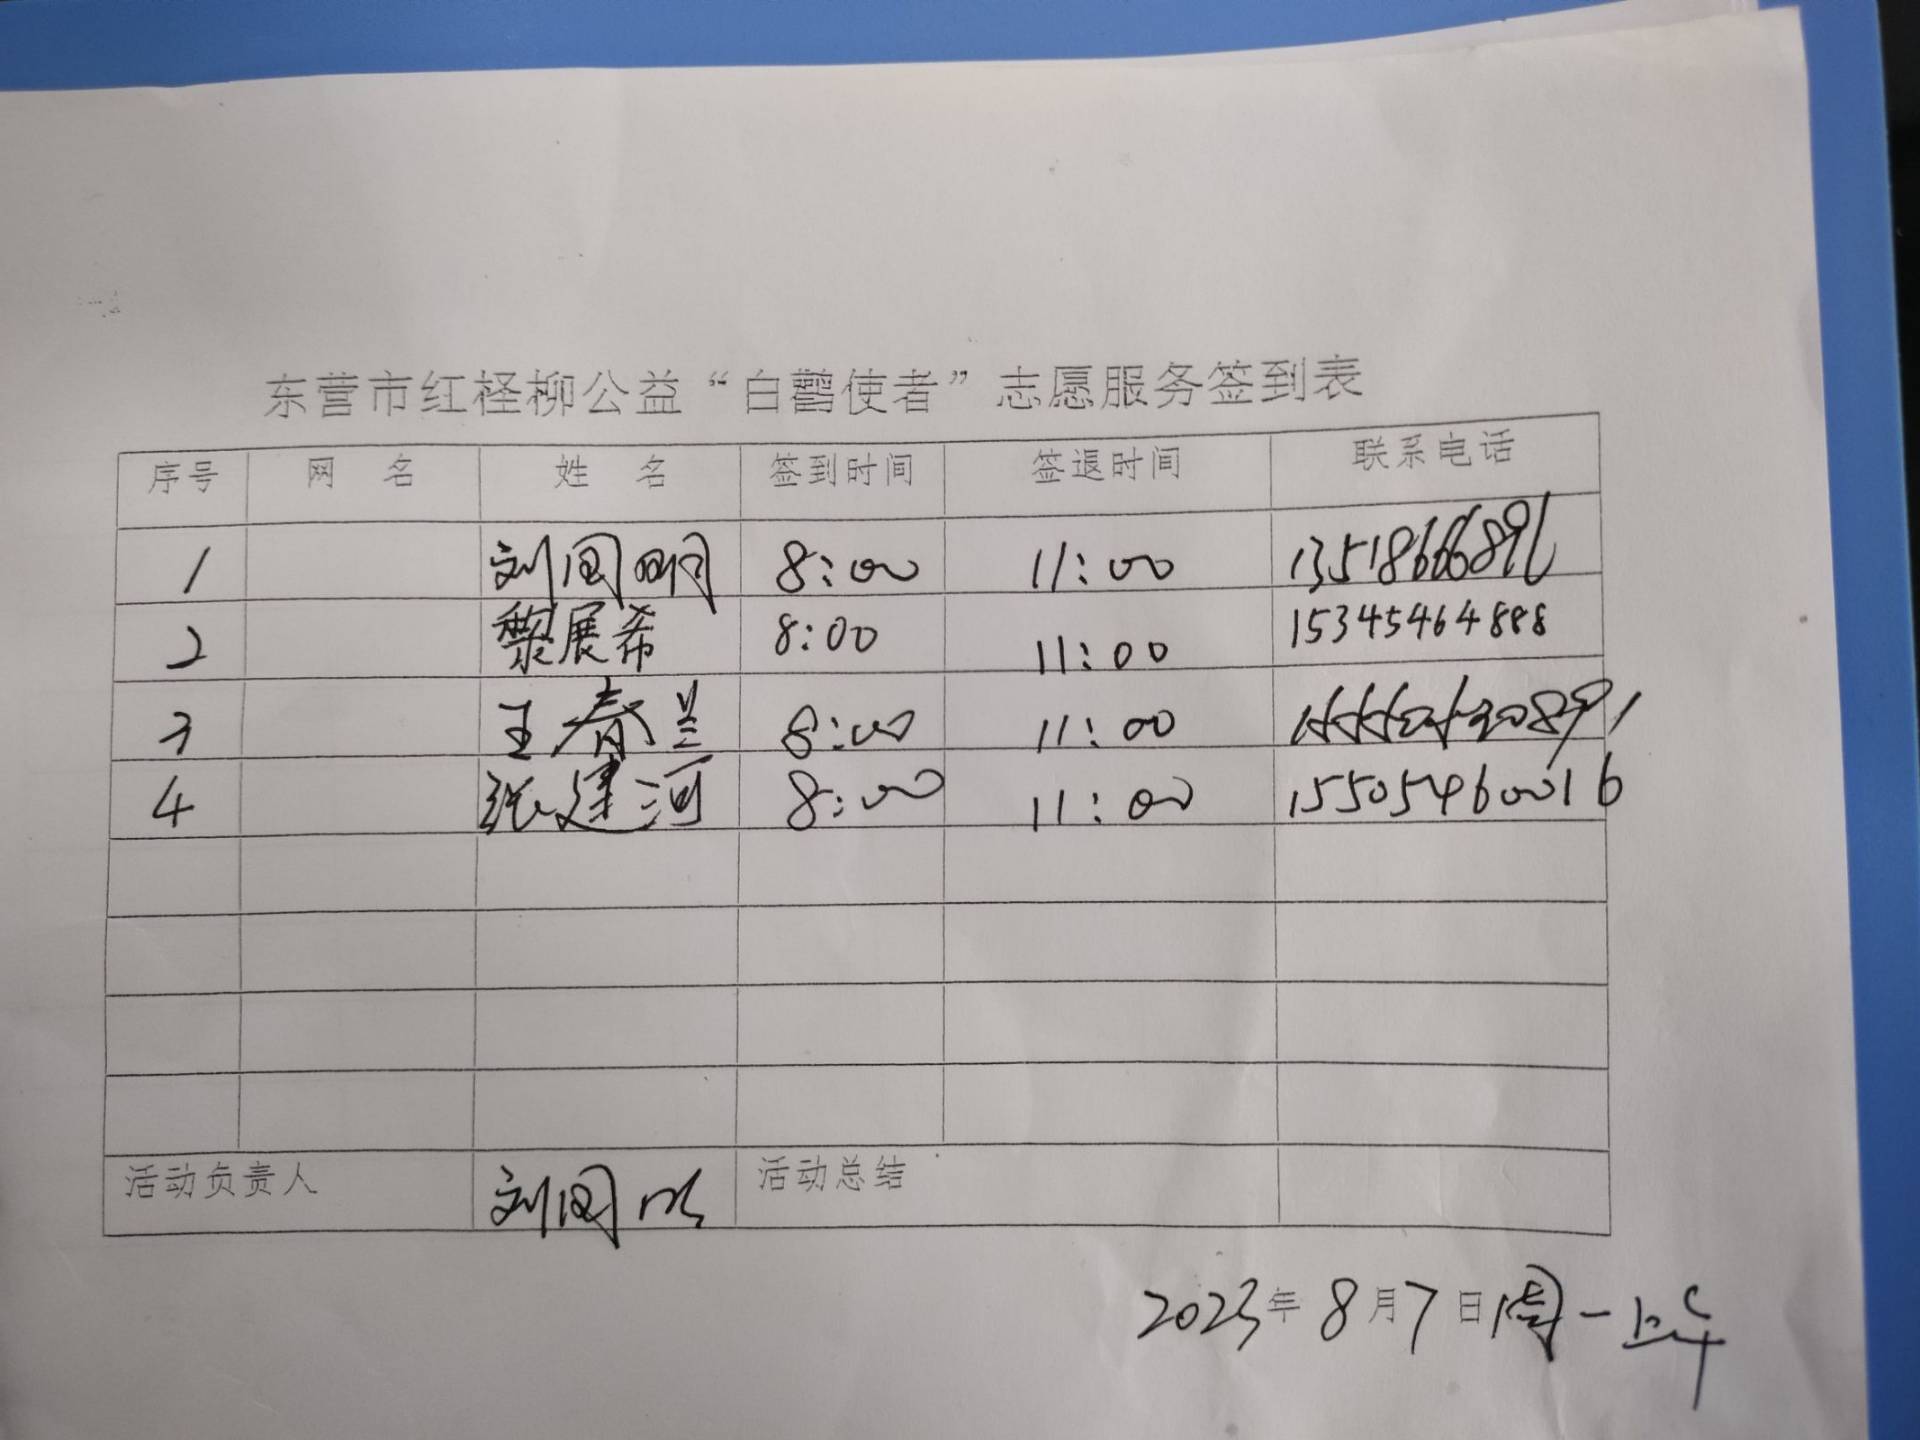 东营市红柽柳公益“白鹳使者”志愿服务签到表
序号 网 名 姓 名 签到时间 签退时间 联系电话
1 刘国明 8:00 11:00
2 黎展希 8:00 11:00 15345464888
3 王春兰 8:00 11:00
4 张建河 8:00 11:00 15505460016
活动负责人 刘国明 活动总结
2023年8月7日周一上午